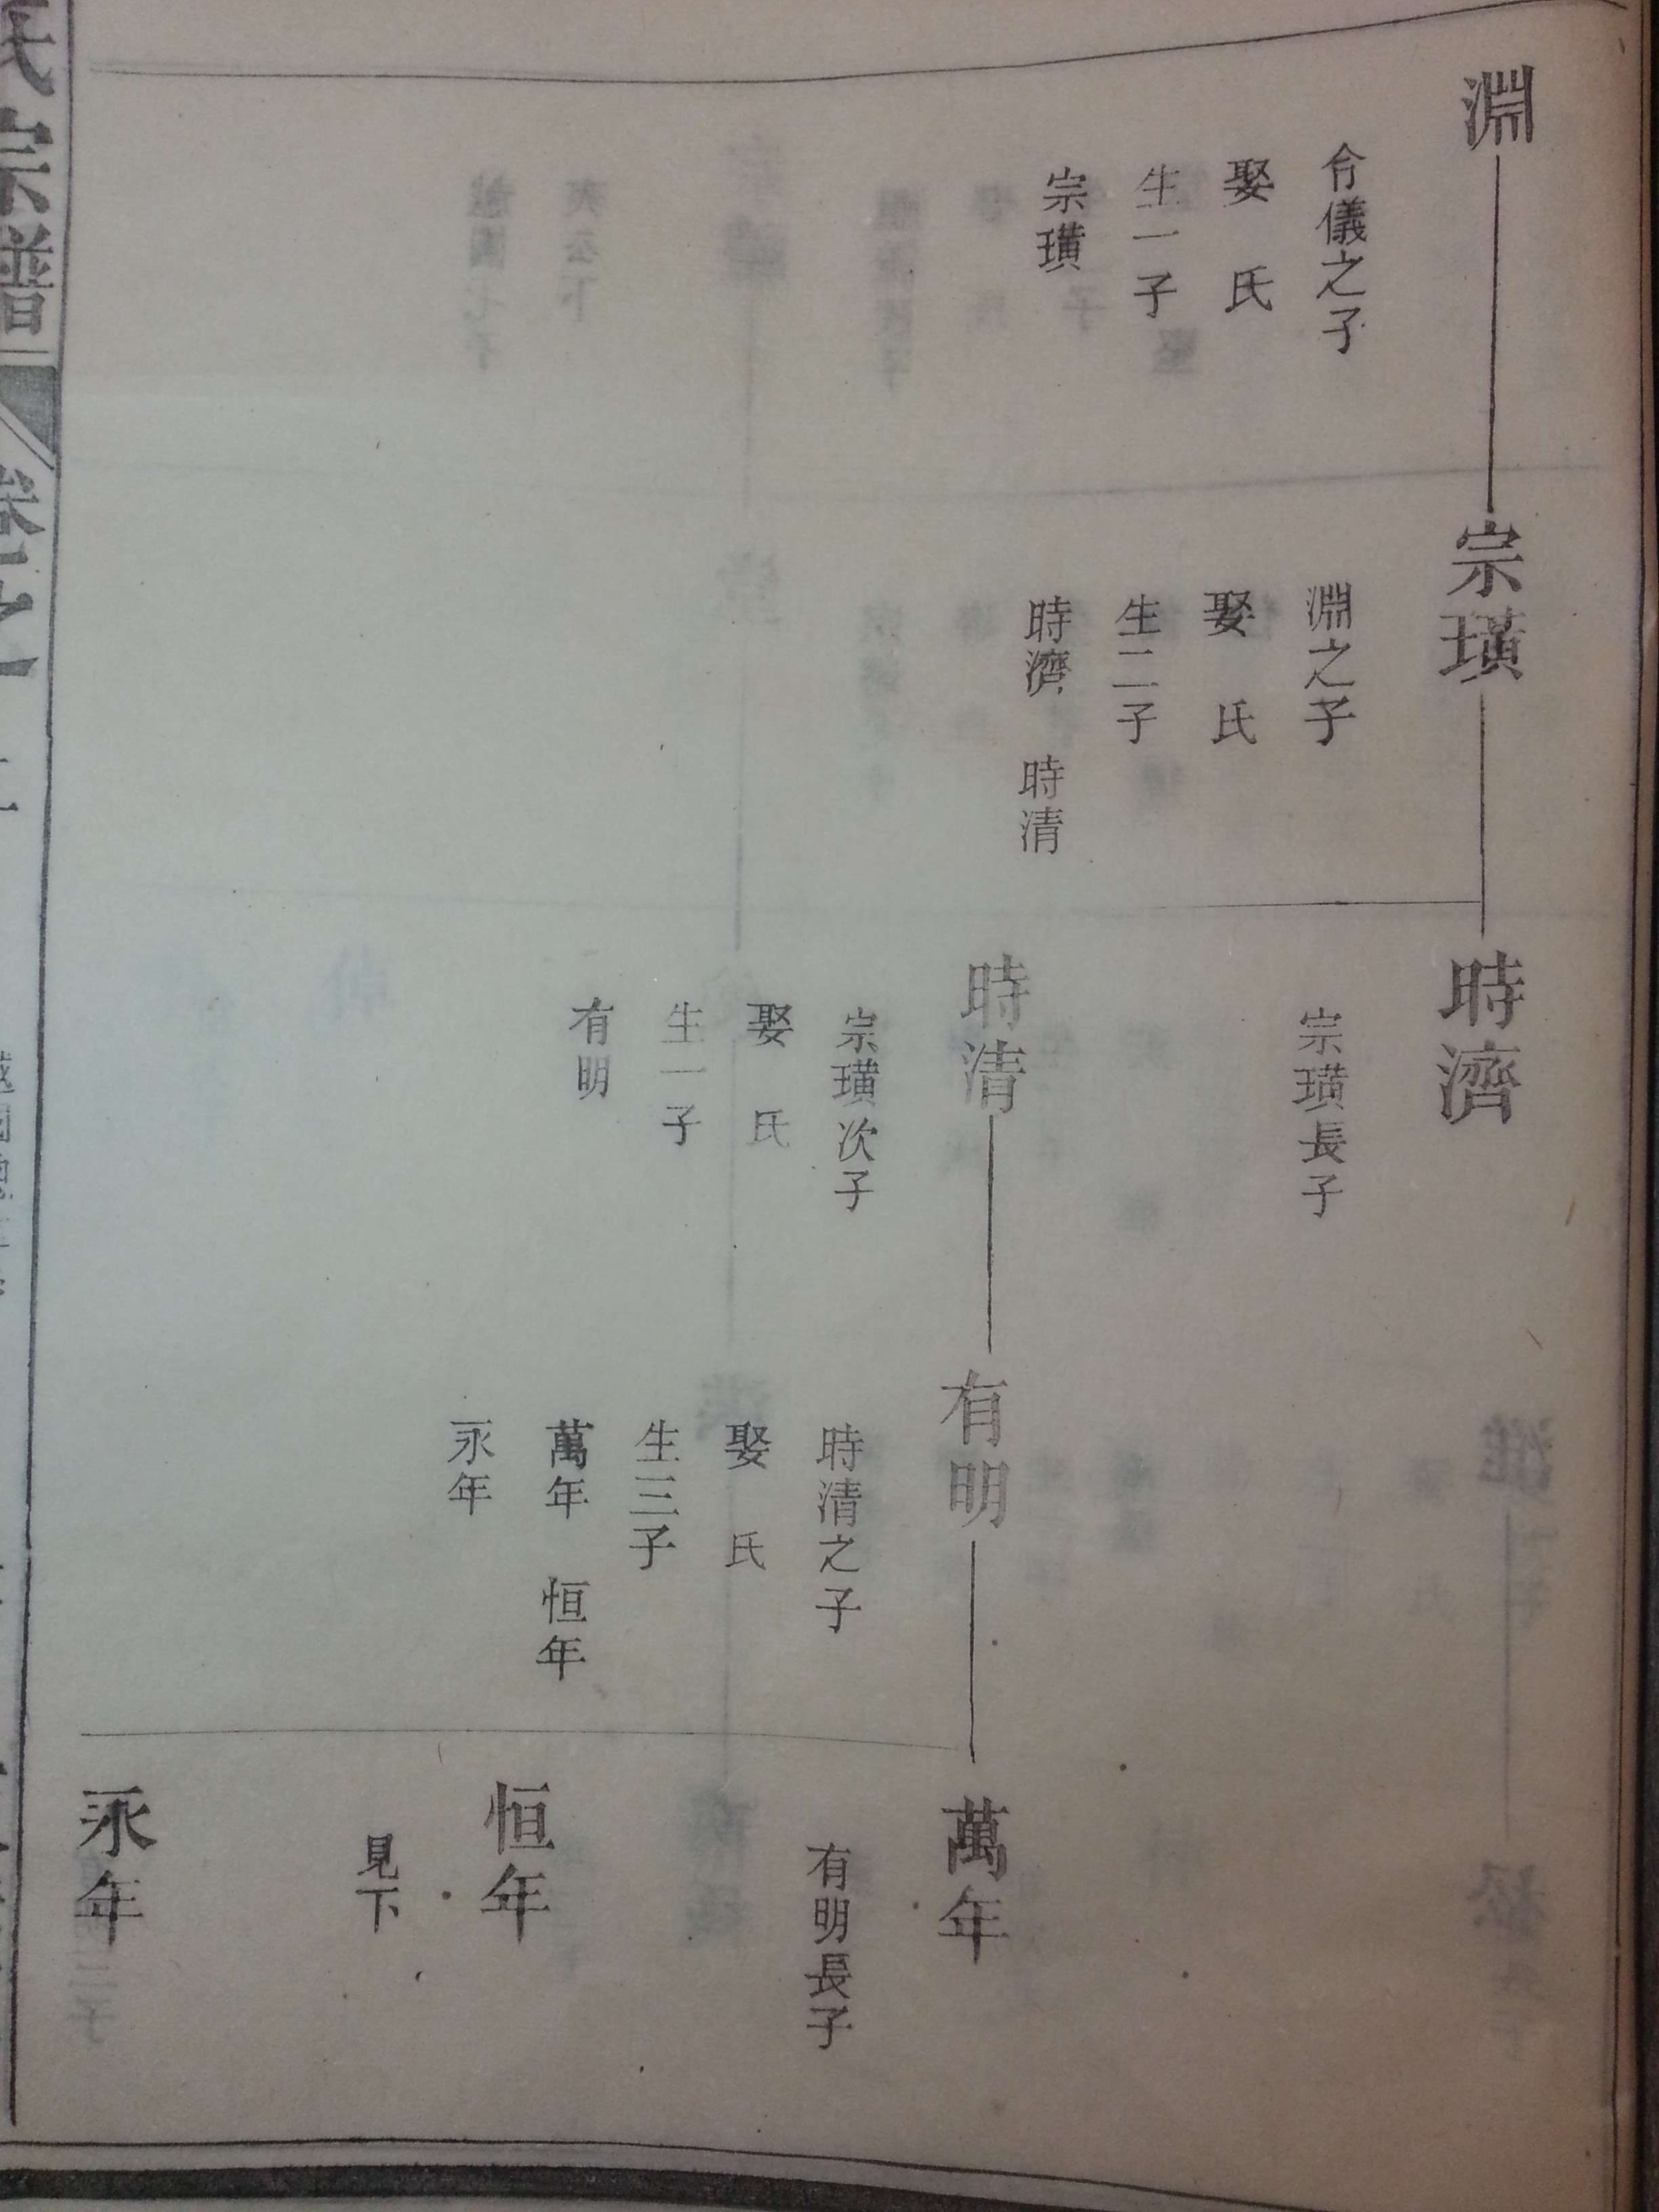 淵
令儀之子
娶　氏
生一子
宗璜
宗璜
淵之子
娶　氏
生二子
時濟　時清
時濟
宗璜長子
時清
宗璜次子
娶　氏
生一子
有明
有明
時清之子
娶　氏
生三子
萬年　恒年
永年
萬年
有明長子
恒年
見下
永年
氏宗譜
卷之